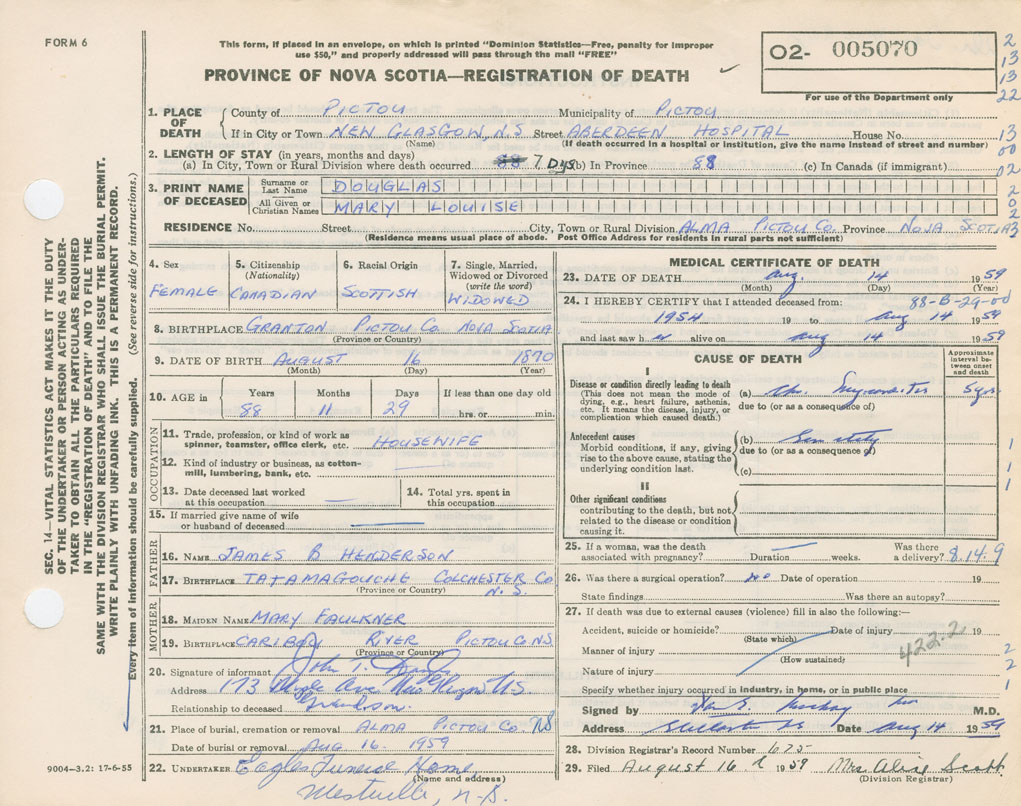 FORM 6
This form, if placed in an envelope, on which is printed "Dominion Statistics—Free, penalty for improper
use $50," and properly addressed will pass through the mail "FREE"
PROVINCE OF NOVA SCOTIA—REGISTRATION OF DEATH
O2- 005070
For use of the Department only
2
13
13
22
13
00
02
2
0
2
3
1. PLACE OF DEATH
County of PICTOU Municipality of PICTOU
If in City or Town NEW GLASGOW, N.S Street ABERDEEN HOSPITAL House No.
(Name) (If death occurred in a hospital or institution, give the name instead of street and number)
2. LENGTH OF STAY (in years, months and days)
(a) In City, Town or Rural Division where death occurred 7 Dys (b) In Province 88 (c) In Canada (if immigrant)
3. PRINT NAME OF DECEASED
Surname or Last Name DOUGLAS
All Given or Christian Names MARY LOUISE
RESIDENCE No. Street City, Town or Rural Division ALMA PICTOU Co. Province NOVA SCOTIA
(Residence means usual place of abode. Post Office Address for residents in rural parts not sufficient)
4. Sex FEMALE
5. Citizenship (Nationality) CANADIAN
6. Racial Origin SCOTTISH
7. Single, Married, Widowed or Divorced (write the word) WIDOWED
8. BIRTHPLACE GRANTON PICTOU Co. NOVA SCOTIA
(Province or Country)
9. DATE OF BIRTH AUGUST 16 1870
(Month) (Day) (Year)
10. AGE in Years Months Days If less than one day old
88 11 29 hrs. or min.
OCCUPATION
11. Trade, profession, or kind of work as spinner, teamster, office clerk, etc. HOUSEWIFE
12. Kind of industry or business, as cotton-mill, lumbering, bank, etc.
13. Date deceased last worked at this occupation
14. Total yrs. spent in this occupation
15. If married give name of wife or husband of deceased
FATHER
16. NAME JAMES B HENDERSON
17. BIRTHPLACE TATAMAGOUCHE COLCHESTER Co N.S.
(Province or Country)
MOTHER
18. MAIDEN NAME MARY FAULKNER
19. BIRTHPLACE CARIBOU RIVER PICTOU Co NS
(Province or Country)
20. Signature of informant John T.
Address 173 Ave New Glasgow N.S
Relationship to deceased Grandson.
21. Place of burial, cremation or removal ALMA PICTOU Co. NS
Date of burial or removal AUG 16. 1959
22. UNDERTAKER Eagles Funeral Home,
(Name and address)
Westville, N.S.
9004—3.2: 17-6-55
MEDICAL CERTIFICATE OF DEATH
23. DATE OF DEATH Aug. 14 1959
(Month) (Day) (Year)
24. I HEREBY CERTIFY that I attended deceased from: 88-B-29-00
1954 19 to Aug 14 1959
and last saw her alive on Aug 14 1959
CAUSE OF DEATH
Approximate interval between onset and death
I
Disease or condition directly leading to death
(This does not mean the mode of dying, e.g., heart failure, asthenia, etc. It means the disease, injury, or complication which caused death.)
(a) Chr. Myocarditis 5 yrs
due to (or as a consequence of)
Antecedent causes
Morbid conditions, if any, giving rise to the above cause, stating the underlying condition last.
(b) Senility
due to (or as a consequence of)
(c)
1
1
1
II
Other significant conditions
contributing to the death, but not related to the disease or condition causing it.
25. If a woman, was the death associated with pregnancy? Duration weeks. Was there a delivery? 8.14.9
26. Was there a surgical operation? no Date of operation 19
State findings Was there an autopsy?
27. If death was due to external causes (violence) fill in also the following:—
Accident, suicide or homicide? Date of injury 19
(State which)
Manner of injury 422.2 2
(How sustained)
Nature of injury 2
Specify whether injury occurred in industry, in home, or in public place 1
Signed by M.D.
Address Date Aug 14 1959
28. Division Registrar's Record Number 675
29. Filed August 16 1959 Mrs. Aline Scott
(Division Registrar)
SEC. 14—VITAL STATISTICS ACT MAKES IT THE DUTY
OF THE UNDERTAKER OR PERSON ACTING AS UNDER-
TAKER TO OBTAIN ALL THE PARTICULARS REQUIRED
IN THE "REGISTRATION OF DEATH" AND TO FILE THE
SAME WITH THE DIVISION REGISTRAR WHO SHALL ISSUE THE BURIAL PERMIT.
WRITE PLAINLY WITH UNFADING INK. THIS IS A PERMANENT RECORD.
Every item of information should be carefully supplied. (See reverse side for instructions.)